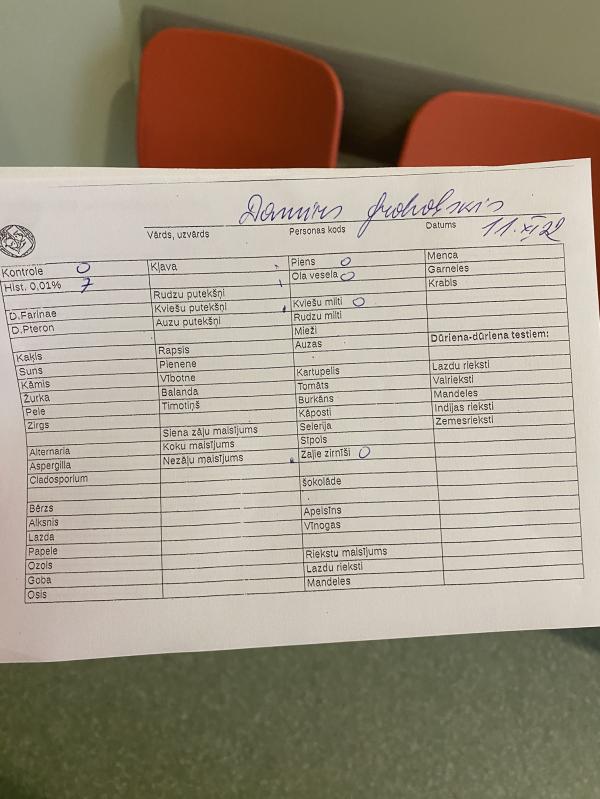 Damirs
11.XI 22
Vārds, uzvārds Personas kods Datums
Kontrole 0
Hist. 0,01% 7
D.Farinae
D.Pteron
Kaķis
Suns
Kāmis
Žurka
Pele
Zirgs
Alternaria
Aspergilla
Cladosporium
Bērzs
Alksnis
Lazda
Papele
Ozols
Goba
Osis
Kļava
Rudzu putekšņi
Kviešu putekšņi
Auzu putekšņi
Rapsis
Pienene
Vībotne
Balanda
Timotiņš
Siena zāļu maisījums
Koku maisījums
Nezāļu maisījums
Piens 0
Ola vesela 0
Kviešu milti 0
Rudzu milti
Mieži
Auzas
Kartupelis
Tomāts
Burkāns
Kāposti
Selerija
Sīpols
Zaļie zirnīši 0
šokolāde
Apelsīns
Vīnogas
Riekstu maisījums
Lazdu rieksti
Mandeles
Menca
Garneles
Krabis
Dūriena-dūriena testiem:
Lazdu rieksti
Valrieksti
Mandeles
Indijas rieksti
Zemesrieksti